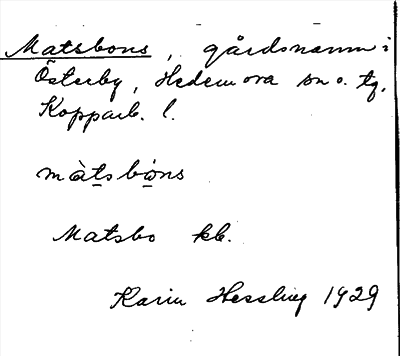 Matsbons, gårdsnamn i
Österby, Hedemora sn o. tg,
Kopparb. l.
màtsbòns
Matsbo kb.
Karin Hessling 1929